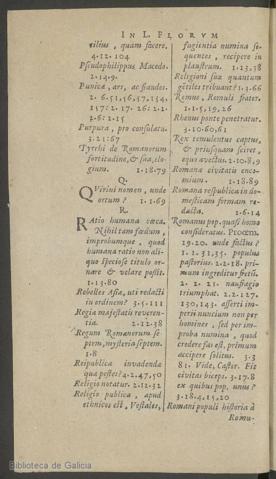 IN L. FLORVM
tilius, quam facere.
4.12.104
Pseudophilippus Macedo.
2.14.9.
Punica, ars, ac fraudes.
2.6.51,56,57,154.
157: 2.17.26: 2.2.
2.6:2.15
Purpura, pro consulatu.
3.21:67
Tyrrhi de Romanorum
fortitudine, & sua, elo-
gium. 1.18.79
Q.
QVirini nomen, unde
ortum? 1.1.69
R.
RAtio humana cæca.
Nihil tam fœdum,
improbumque, quod
humana ratio non ali-
quo speciose titulo or-
nare & velare possit.
1.13.80
Rebelles Asiæ, uti redacti
in ordinem? 3.5.111
Regia majestatis reveren-
tia. 2.12.38
Regum Romanorum se-
ptem, mysteria septem.
1.8
Reipublica invadenda
qua pestes? 4.2.47,50
Religio notatur. 2.12.32
Religio publica, apud
ethnicos est, Vestales,
fugientia numina se-
quentes, recipere in
plaustrum. 1.13.78
Religioni sua quantum
gentiles trebuant? 1.1.66
Romus, Romuli frater.
1.1.15,19,26
Rhenus ponte penetratur.
3.10.60,61
Rex temulentus captus,
& priusquam sciret,
equo avectus. 2.10.8,9
Romana civitatis enco-
mium. 1.18.89
Romana respublica in do-
mesticam firmam re-
dacta. 1.6.14
Romanus pop. quasi homo
consideratus. Proœm.
19.20. unde fictus?
1.1.31,35. populus
pastorius. 2.2.18. pri-
mum ingreditur fretū.
2.2.21. naufragio
triumphat. 2.2.127.
130,143. eserti im-
perii nuncium non per
homines, sed per im-
proba numina, quod
credere fas est, primum
accipere solitus. 3.3
81. Vide, Castor. Fit
civitas biceps. 3.17.8
ex quibus pop. unus?
3.18.4,15,20
Romani populi historia à
Romu-
Biblioteca de Galicia